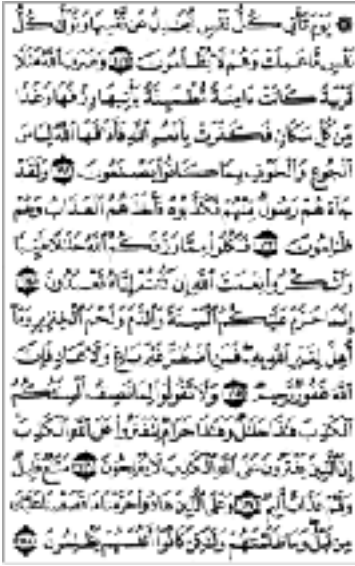 ۞ يَوْمَ تَأْتِي كُلُّ نَفْسٍ تُجَٰدِلُ عَن نَّفْسِهَا وَتُوَفَّىٰ كُلُّ
نَفْسٍ مَّا عَمِلَتْ وَهُمْ لَا يُظْلَمُونَ وَضَرَبَ ٱللَّهُ مَثَلًا
قَرْيَةً كَانَتْ ءَامِنَةً مُّطْمَئِنَّةً يَأْتِيهَا رِزْقُهَا رَغَدًا
مِّن كُلِّ مَكَانٍ فَكَفَرَتْ بِأَنْعُمِ ٱللَّهِ فَأَذَٰقَهَا ٱللَّهُ لِبَاسَ
ٱلْجُوعِ وَٱلْخَوْفِ بِمَا كَانُوا۟ يَصْنَعُونَ وَلَقَدْ
جَآءَهُمْ رَسُولٌ مِّنْهُمْ فَكَذَّبُوهُ فَأَخَذَهُمُ ٱلْعَذَابُ وَهُمْ
ظَٰلِمُونَ فَكُلُوا۟ مِمَّا رَزَقَكُمُ ٱللَّهُ حَلَٰلًا طَيِّبًا
وَٱشْكُرُوا۟ نِعْمَتَ ٱللَّهِ إِن كُنتُمْ إِيَّاهُ تَعْبُدُونَ
إِنَّمَا حَرَّمَ عَلَيْكُمُ ٱلْمَيْتَةَ وَٱلدَّمَ وَلَحْمَ ٱلْخِنزِيرِ وَمَآ
أُهِلَّ لِغَيْرِ ٱللَّهِ بِهِۦ فَمَنِ ٱضْطُرَّ غَيْرَ بَاغٍ وَلَا عَادٍ فَإِنَّ
ٱللَّهَ غَفُورٌ رَّحِيمٌ وَلَا تَقُولُوا۟ لِمَا تَصِفُ أَلْسِنَتُكُمُ
ٱلْكَذِبَ هَٰذَا حَلَٰلٌ وَهَٰذَا حَرَامٌ لِّتَفْتَرُوا۟ عَلَى ٱللَّهِ ٱلْكَذِبَ
إِنَّ ٱلَّذِينَ يَفْتَرُونَ عَلَى ٱللَّهِ ٱلْكَذِبَ لَا يُفْلِحُونَ مَتَٰعٌ قَلِيلٌ
وَلَهُمْ عَذَابٌ أَلِيمٌ وَعَلَى ٱلَّذِينَ هَادُوا۟ حَرَّمْنَا مَا قَصَصْنَا عَلَيْكَ
مِن قَبْلُ وَمَا ظَلَمْنَٰهُمْ وَلَٰكِن كَانُوٓا۟ أَنفُسَهُمْ يَظْلِمُونَ